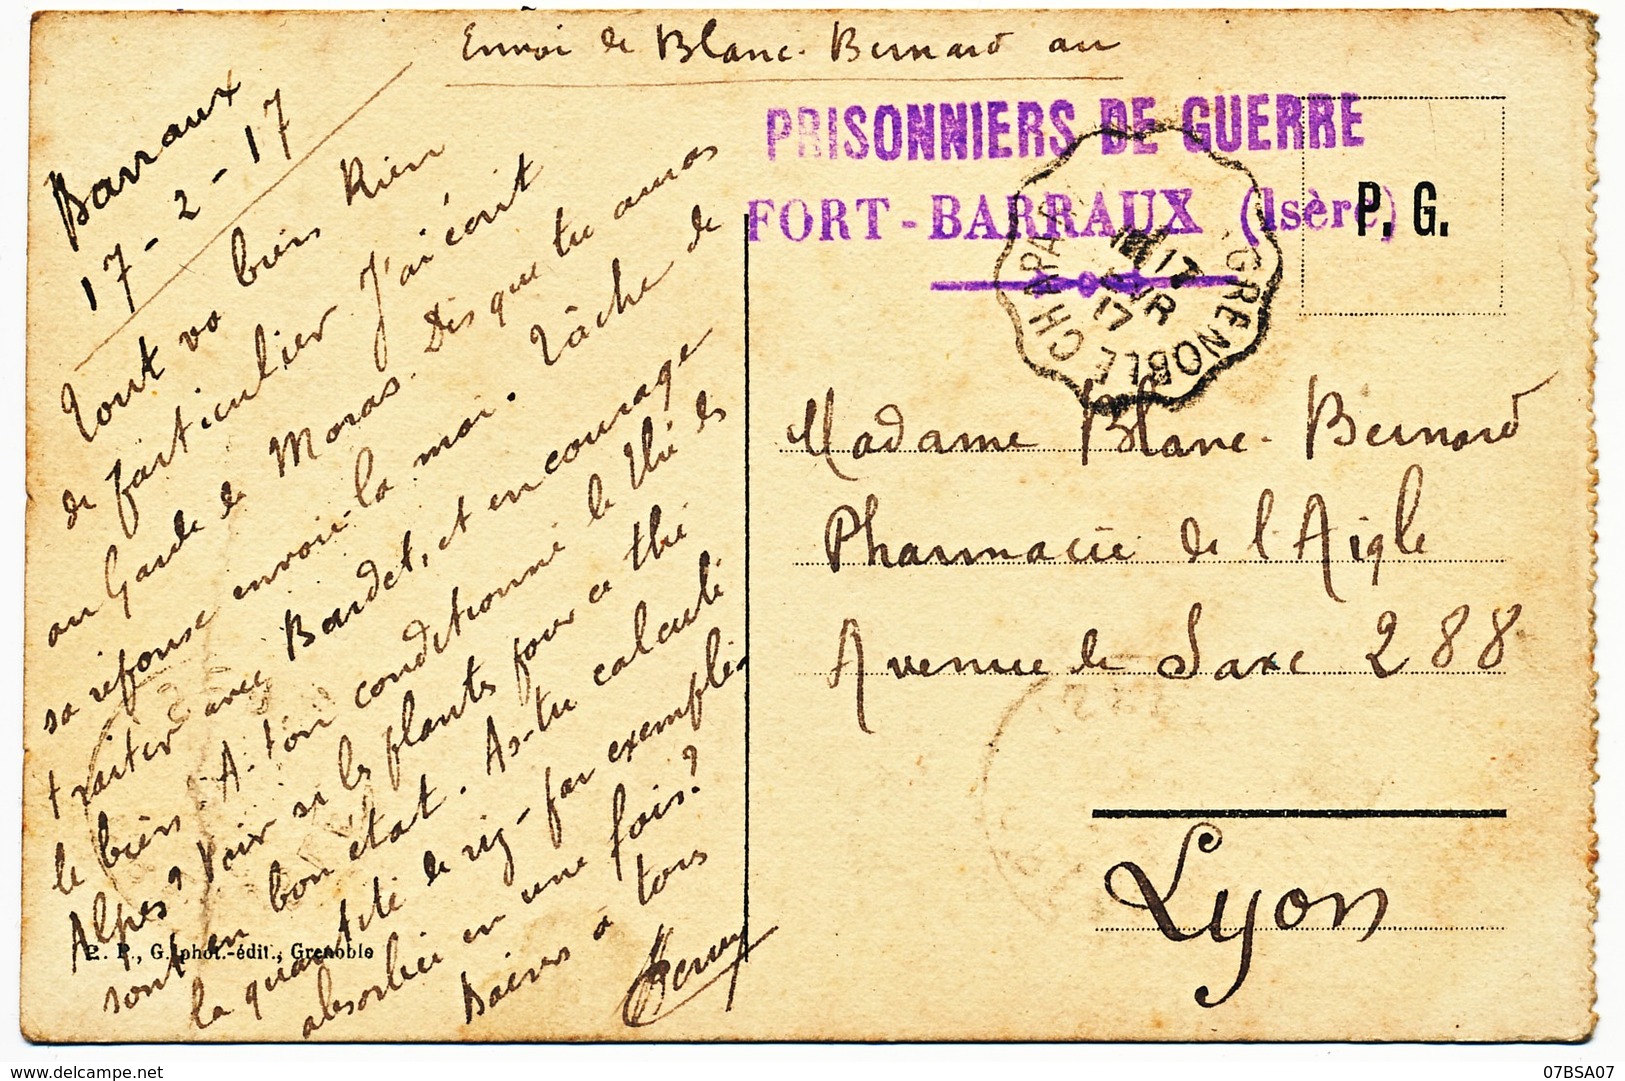 Envoi de Blanc-Bernard au
PRISONNIERS DE GUERRE
FORT-BARRAUX (Isère)
P. G.
CHAPA GRENOBLE
17
17
Barraux
17-2-17
Tout va bien Rien
de particulier. J'ai écrit
au Garde de Moras. Dès que tu auras
sa réponse envoie-la moi. Tâche de
traiter avec Bardet, et encourage
le bien. A-t-on conditionné le thé des
Alpes? Voir si les plantes pour ce thé
sont en bon état. As-tu calculé
la quantité de riz-par exemple-
absorbée en une fois?
Baisers à tous
Madame Blanc-Bernard
Pharmacie de l'Aigle
Avenue de Saxe 288
Lyon
E. P., G. phot.-édit., Grenoble
07BSA07